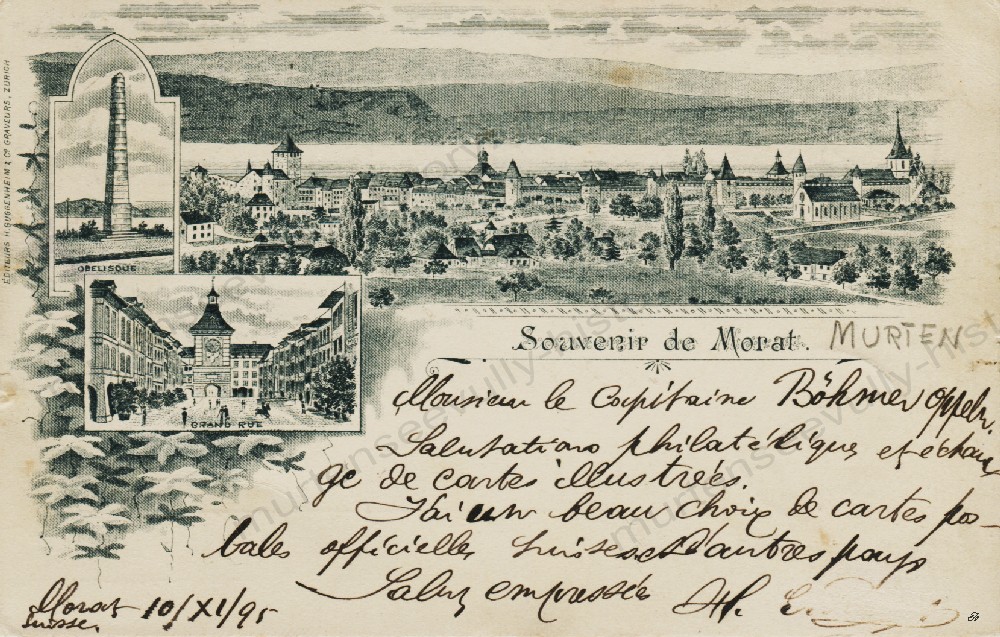 ÉDITEURS H. GUGGENHEIM & Cº GRAVEURS, ZÜRICH
OBELISQUE
GRAND RUE
Souvenir de Morat. MURTEN
Monsieur le Capitaine Böhmer
Salutations philatéliques et échan
ge de cartes illustrées.
J'ai un beau choix de cartes pos-
tales officielles suisses et d'autres pays
Saluz empressées
Morat 10/XI/95
Suisse.
murtenseevully-history